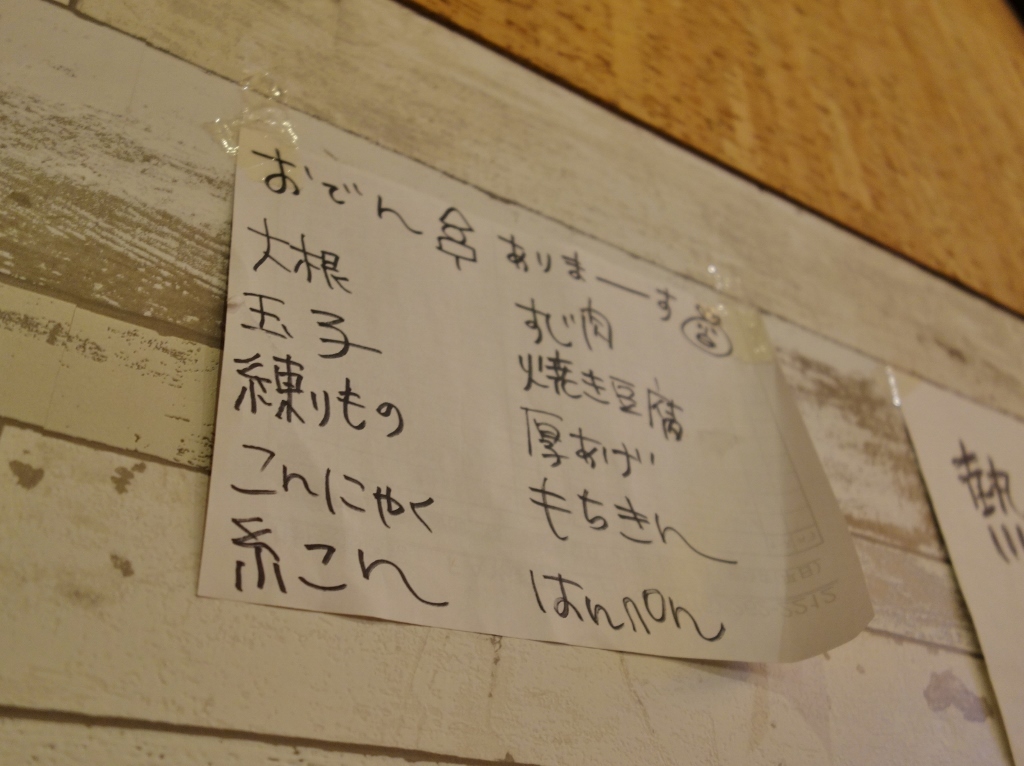 おでん ありまーす
大根
玉子
練りもの
こんにゃく
糸こん
すじ肉
焼き豆腐
厚あげ
もちきん
はんぺん
熱